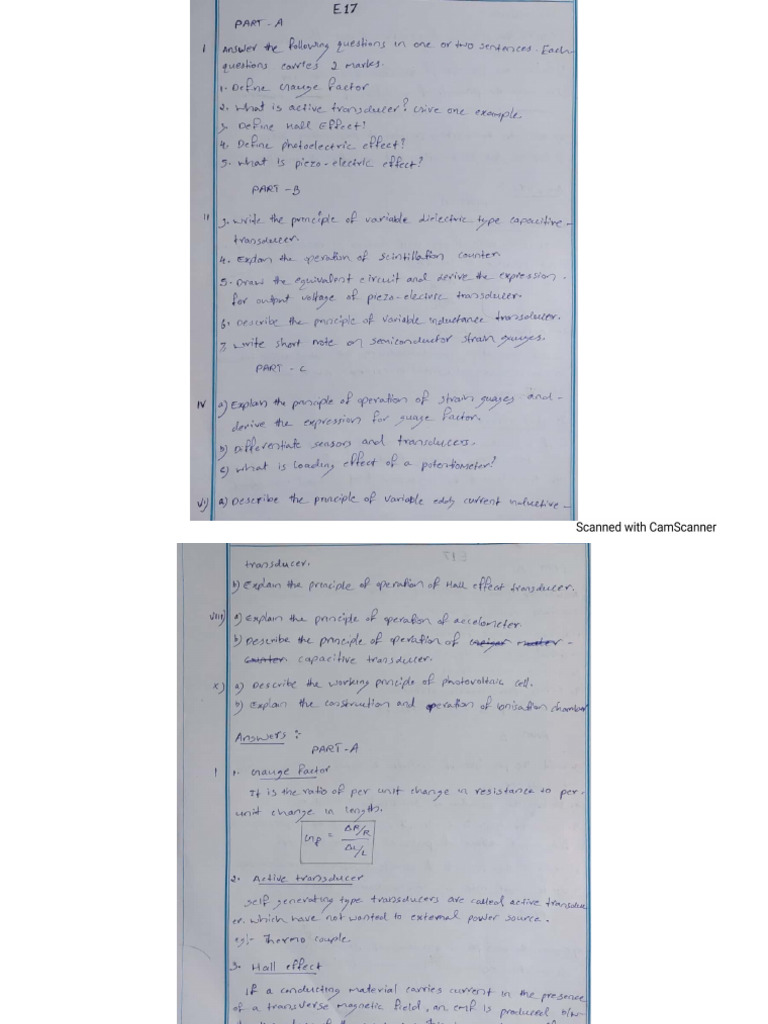 E17
PART - A
1 Answer the following questions in one or two sentences. Each
questions carries 2 marks.
1. Define Gauge factor
2. What is active transducer? Give one example.
3. Define Hall Effect?
4. Define photoelectric effect?
5. What is piezo-electric effect?
PART - B
11 3. Write the principle of variable dielectric type capacitive-
transducer.
4. Explan the operation of scintillation counter
5. Draw the equivalent circuit and derive the expression.
for output voltage of piezo-electric transducer.
6. Describe the principle of variable inductance transducer.
7. Write short note on semiconductor strain guages.
PART - C
IV a) Explain the principle of operation of strain guages and-
derive the expression for guage factor.
b) Differentiate sensors and transducers.
c) What is Loading effect of a potentiometer?
VI) a) Describe the principle of variable eddy current inductive-
Scanned with CamScanner
E17
transducer.
b) Explain the principle of operation of Hall effect transducer.
VIII) a) Explain the principle of operation of accelometer.
b) Describe the principle of operation of
counter capacitive transducer.
X) a) Describe the working principle of photovoltaic cell.
b) Explain the construction and operation of ionisation chamber
Answers :-
PART-A
1 1. Gauge Factor
It is the ratio of per unit change in resistance to per.
unit change in length.
Gf = ΔR/R
ΔL/L
2. Active transducer
self generating type transducers are called active transduc
er. which have not wanted to external power source.
eg:- Thermo couple.
3. Hall effect
If a conducting material carries current in the presence
of a transverse magnetic field, an emf is produced b/w-